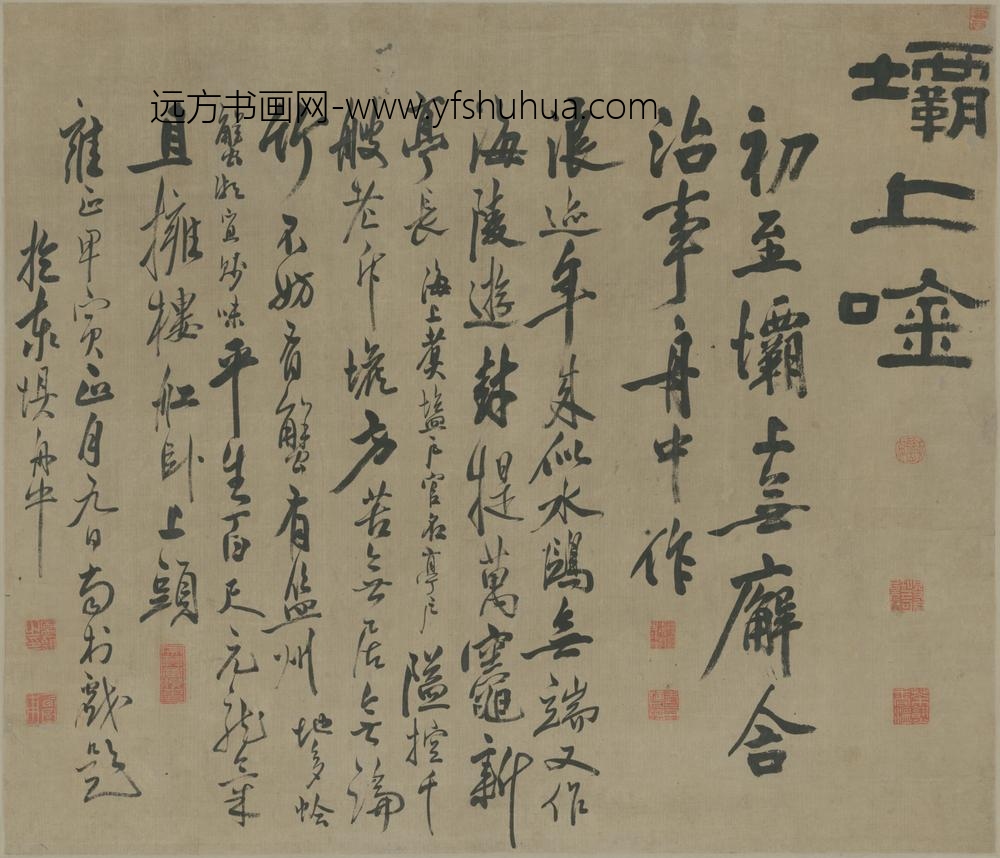 远方书画网-www.yfshuhua.com
壩上唫
初至壩上無廨舍
治事舟中作
浪迹年來似水鷗無端又作
海陵遊堤萬竈新
亭長海上煑鹽戶官名亭戶隘控千
艘老斥堠方苦無居無論
所不妨有蟹有監州地多蛤
蟹宜味平生百尺元龍氣
且擁樓船卧上頭
雍正甲寅正月元日南村戲題
於東壩舟中